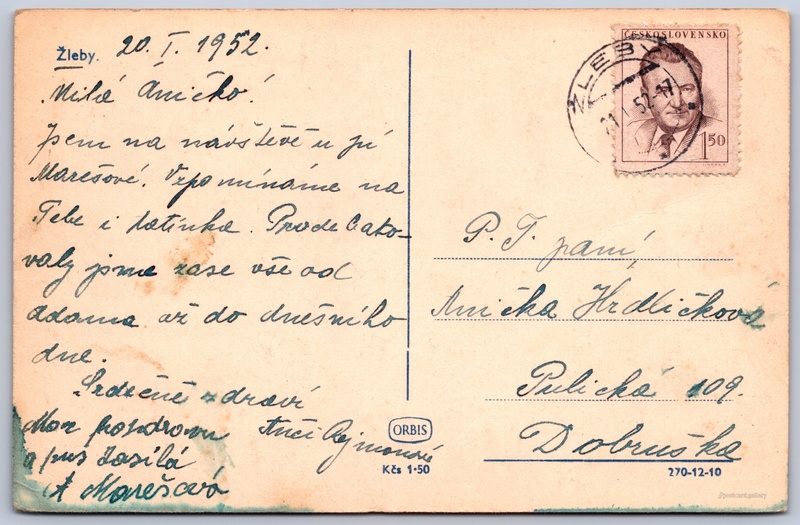 Žleby. 20. I. 1952.
Milá Aničko!
Jsem na návštěvě u pí
Marešové. Vzpomínáme na
Tebe i tatínka.
valy jsme zase vše od
adama až do dnešního
dne.
Srdečně zdraví
Anči
Moc pozdravu
a pus zasílá
A Marešová
ČESKOSLOVENSKO
1 50
ŽLEBY
21. I. 52-17
P. T. paní,
Anička Hrdličková
Pulická 109.
Dobruška
ORBIS
Kčs 1·50
270-12-10